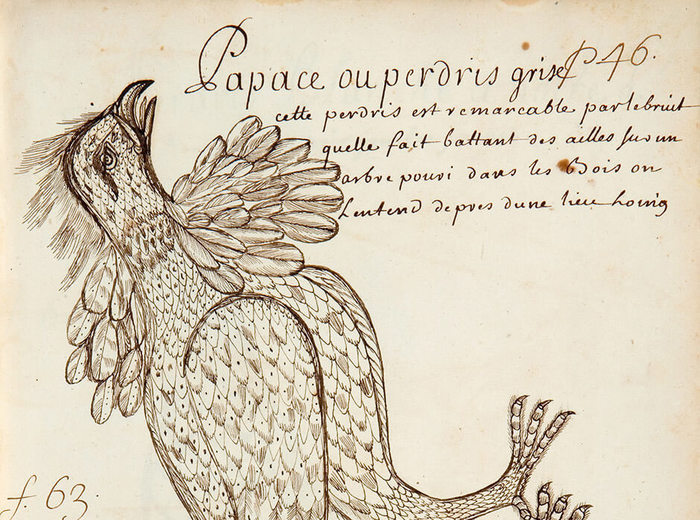 Papace ou perdris grise P 46.
cette perdris est remarcable par le bruit
quelle fait battant des ailles sur un
arbre pouri dans les Bois on
Lentend de pres dune lieu Loing
f. 63.